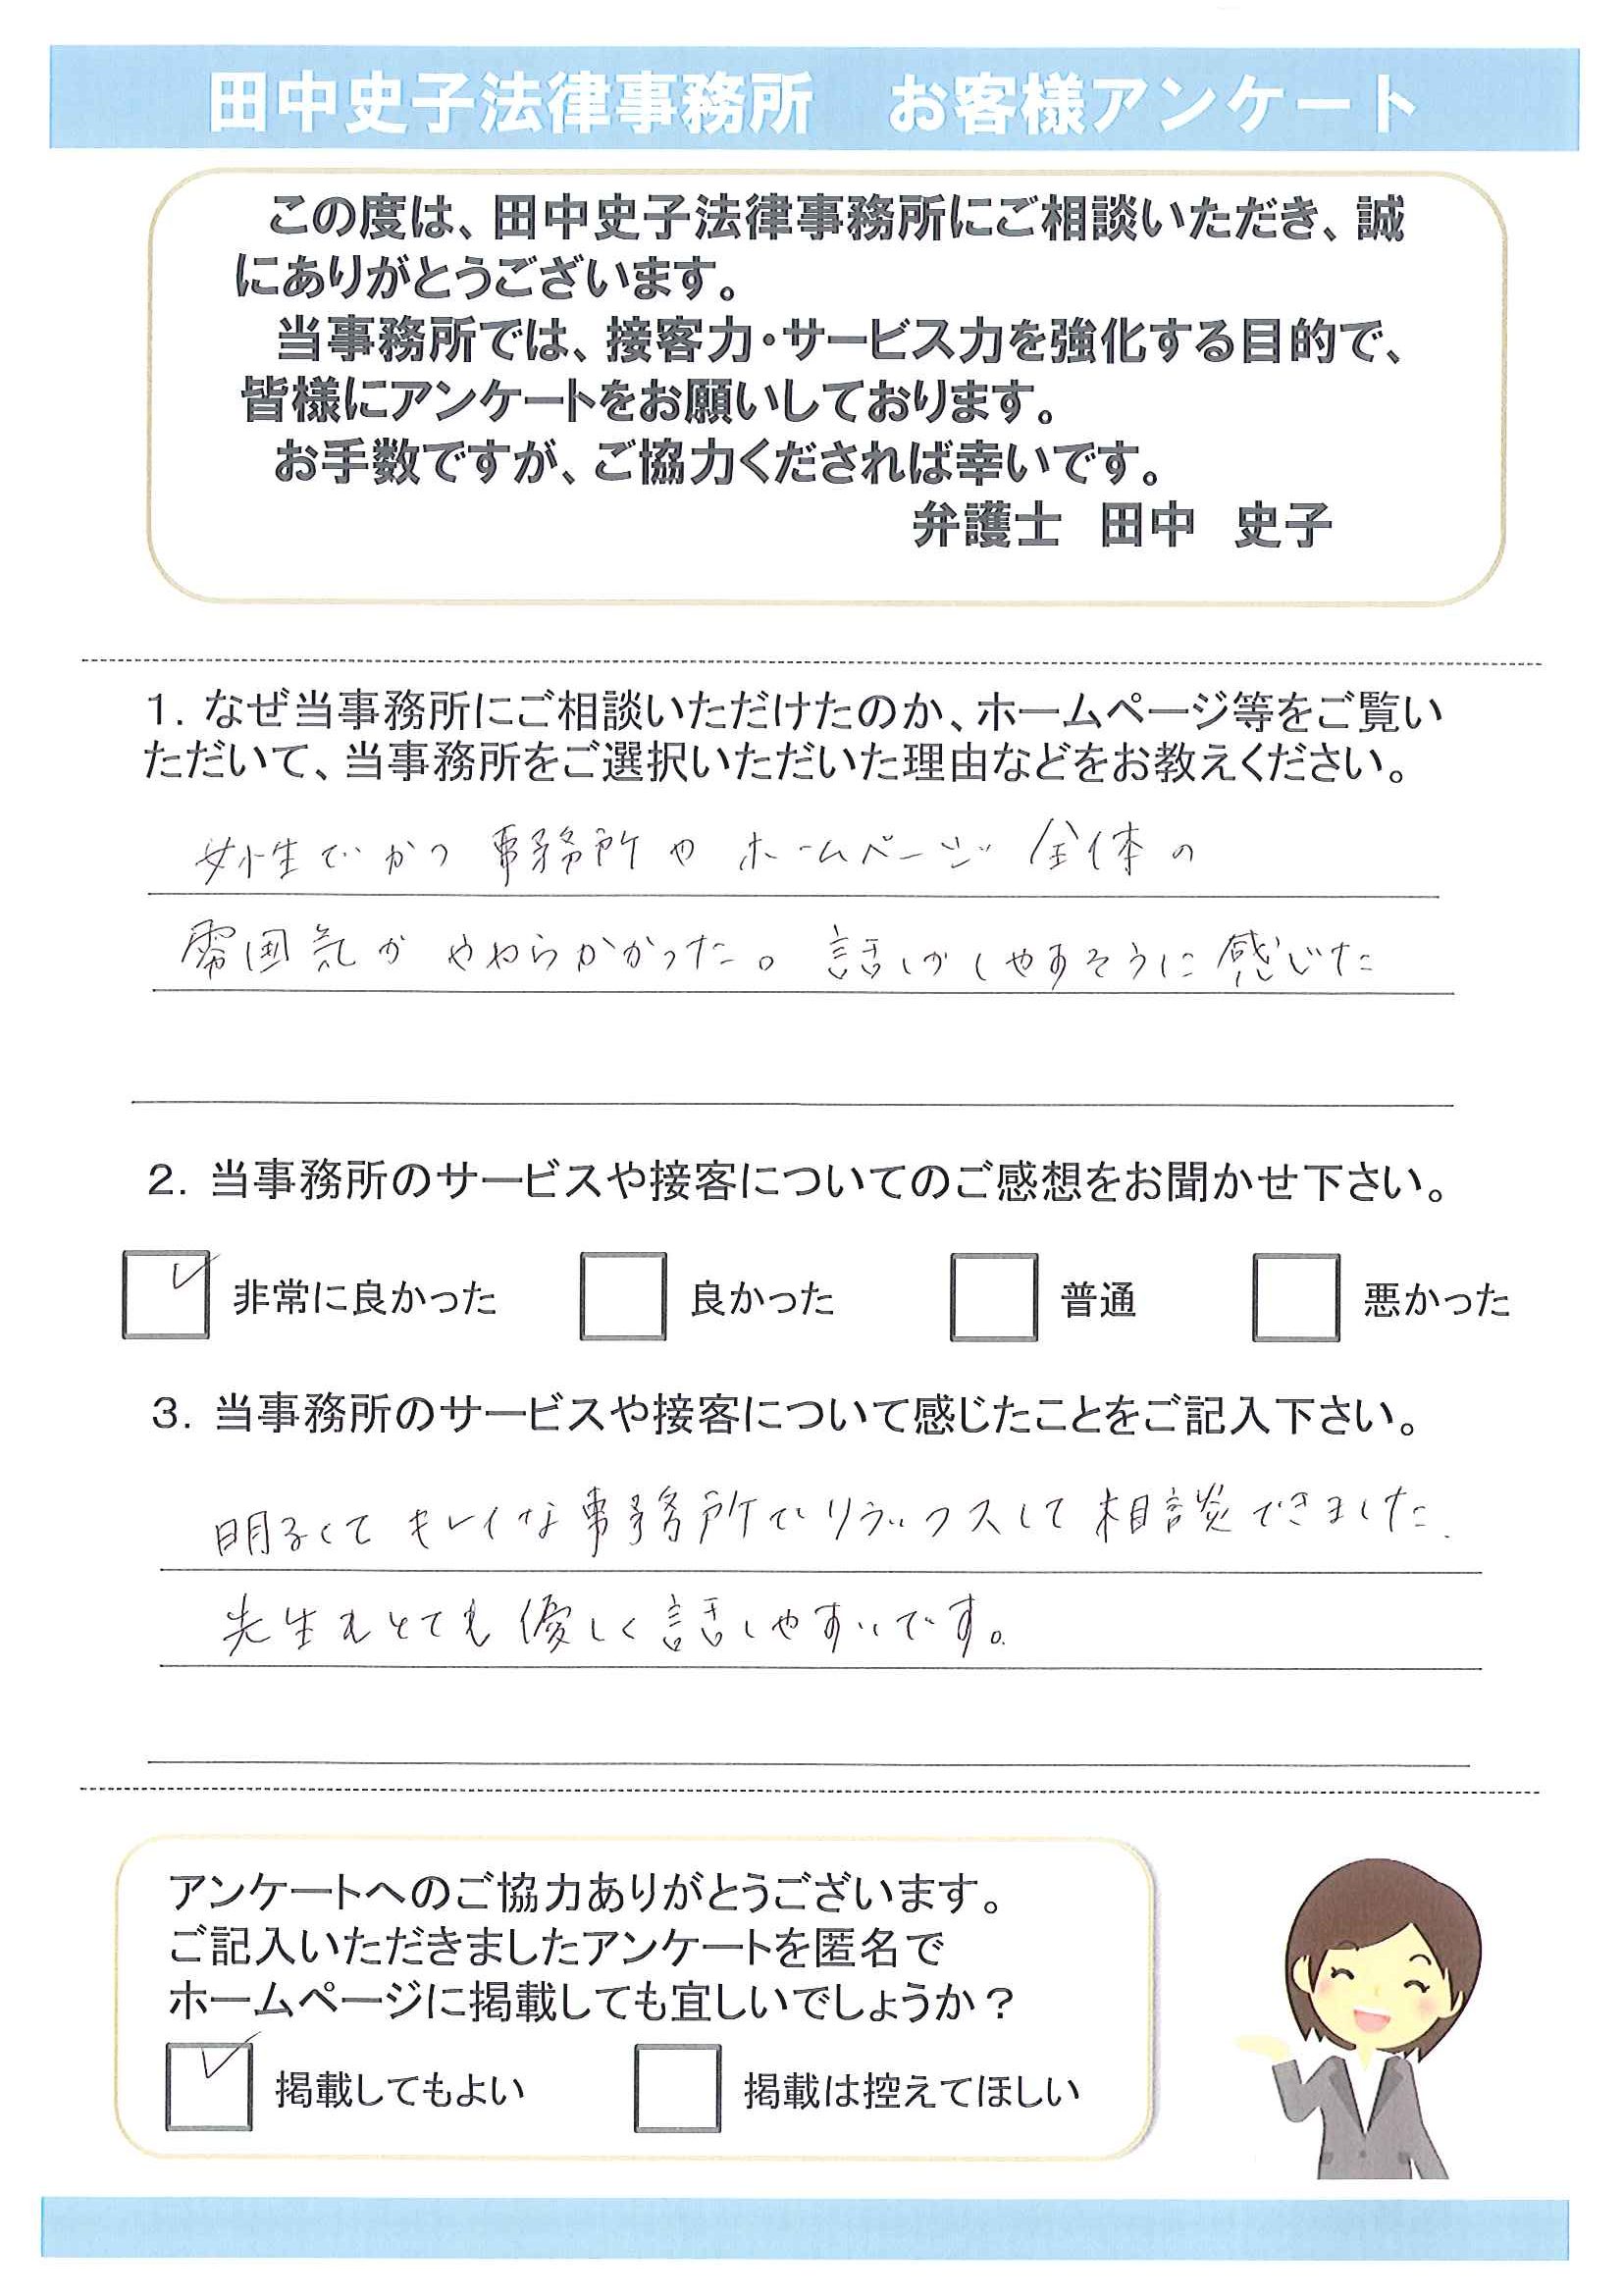 田中史子法律事務所　お客様アンケート
この度は、田中史子法律事務所にご相談いただき、誠
にありがとうございます。
当事務所では、接客力・サービス力を強化する目的で、
皆様にアンケートをお願いしております。
お手数ですが、ご協力くだされば幸いです。
弁護士　田中　史子
1. なぜ当事務所にご相談いただけたのか、ホームページ等をご覧い
ただいて、当事務所をご選択いただいた理由などをお教えください。
女性でかつ 事務所や ホームページ 全体の
雰囲気が やわらかかった。 話しがしやすそうに感じた
2. 当事務所のサービスや接客についてのご感想をお聞かせ下さい。
非常に良かった　良かった　普通　悪かった
3. 当事務所のサービスや接客について感じたことをご記入下さい。
明るくて キレイな事務所でリラックスして相談できました.
先生もとても優しく話しやすいです。
アンケートへのご協力ありがとうございます。
ご記入いただきましたアンケートを匿名で
ホームページに掲載しても宜しいでしょうか？
掲載してもよい　掲載は控えてほしい